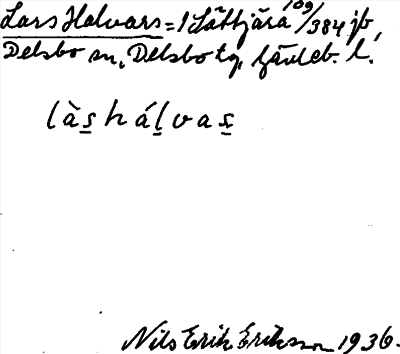 Lars Halvars = 1 Lättjära 109/384 jb,
Delsbo sn, Delsbo tg, Gävleb. l.
làs̲ hál̲vas̲
Nils Erik Eriksson 1936.